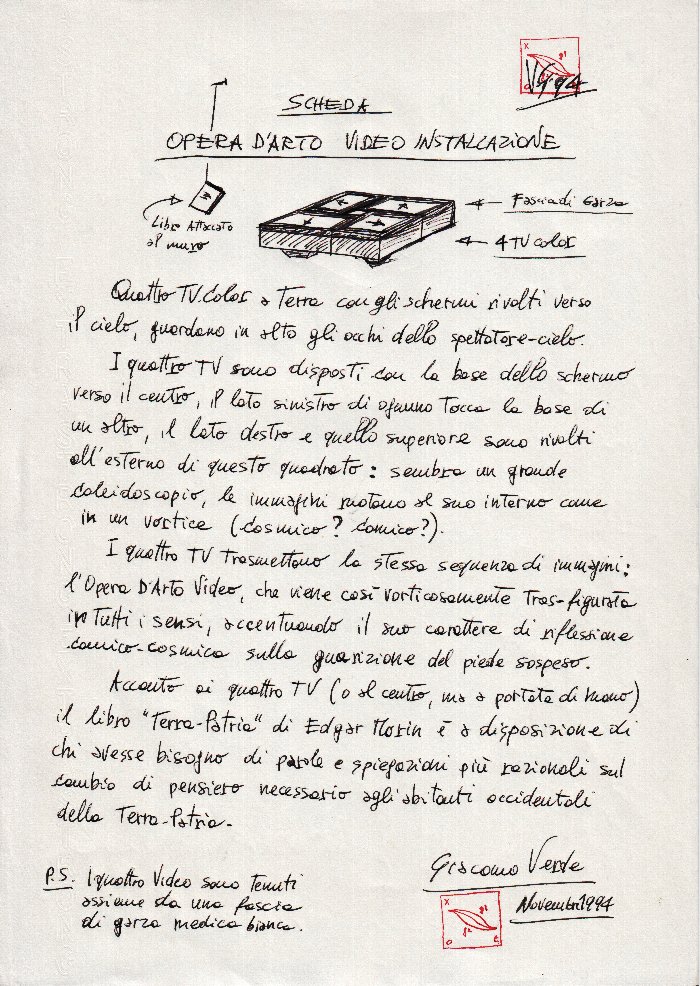 V994
SCHEDA
OPERA D'ARTO VIDEO INSTALLAZIONE
Libro Attaccato
al muro
Fascia di Garza
4 TV color
Quattro TV.Color a Terra con gli schermi rivolti verso
il cielo, guardano in alto gli occhi dello spettatore-cielo.
I quattro TV sono disposti con la base dello schermo
verso il centro, il lato sinistro di ognuno tocca la base di
un altro, il lato destro e quello superiore sono rivolti
all'esterno di questo quadrato: sembra un grande
caleidoscopio, le immagini ruotano al suo interno come
in un vortice (cosmico? comico?).
I quattro TV trasmettono la stessa sequenza di immagini:
l'Opera D'Arto Video, che viene così vorticosamente Tras-figurata
in Tutti i sensi, accentuando il suo carattere di riflessione
comico-cosmica sulla guarizione del piede sospeso.
Accanto ai quattro TV (o al centro, ma a portata di mano)
il libro "Terra-Patria" di Edgar Morin è a disposizione di
chi avesse bisogno di parole e spiegazioni più razionali sul
cambio di pensiero necessario agli abitanti occidentali
della Terra-Patria.
Giacomo Verde
Novembre 1994
P.S. I quattro Video sono Tenuti
assieme da una fascia
di garza medica bianca.